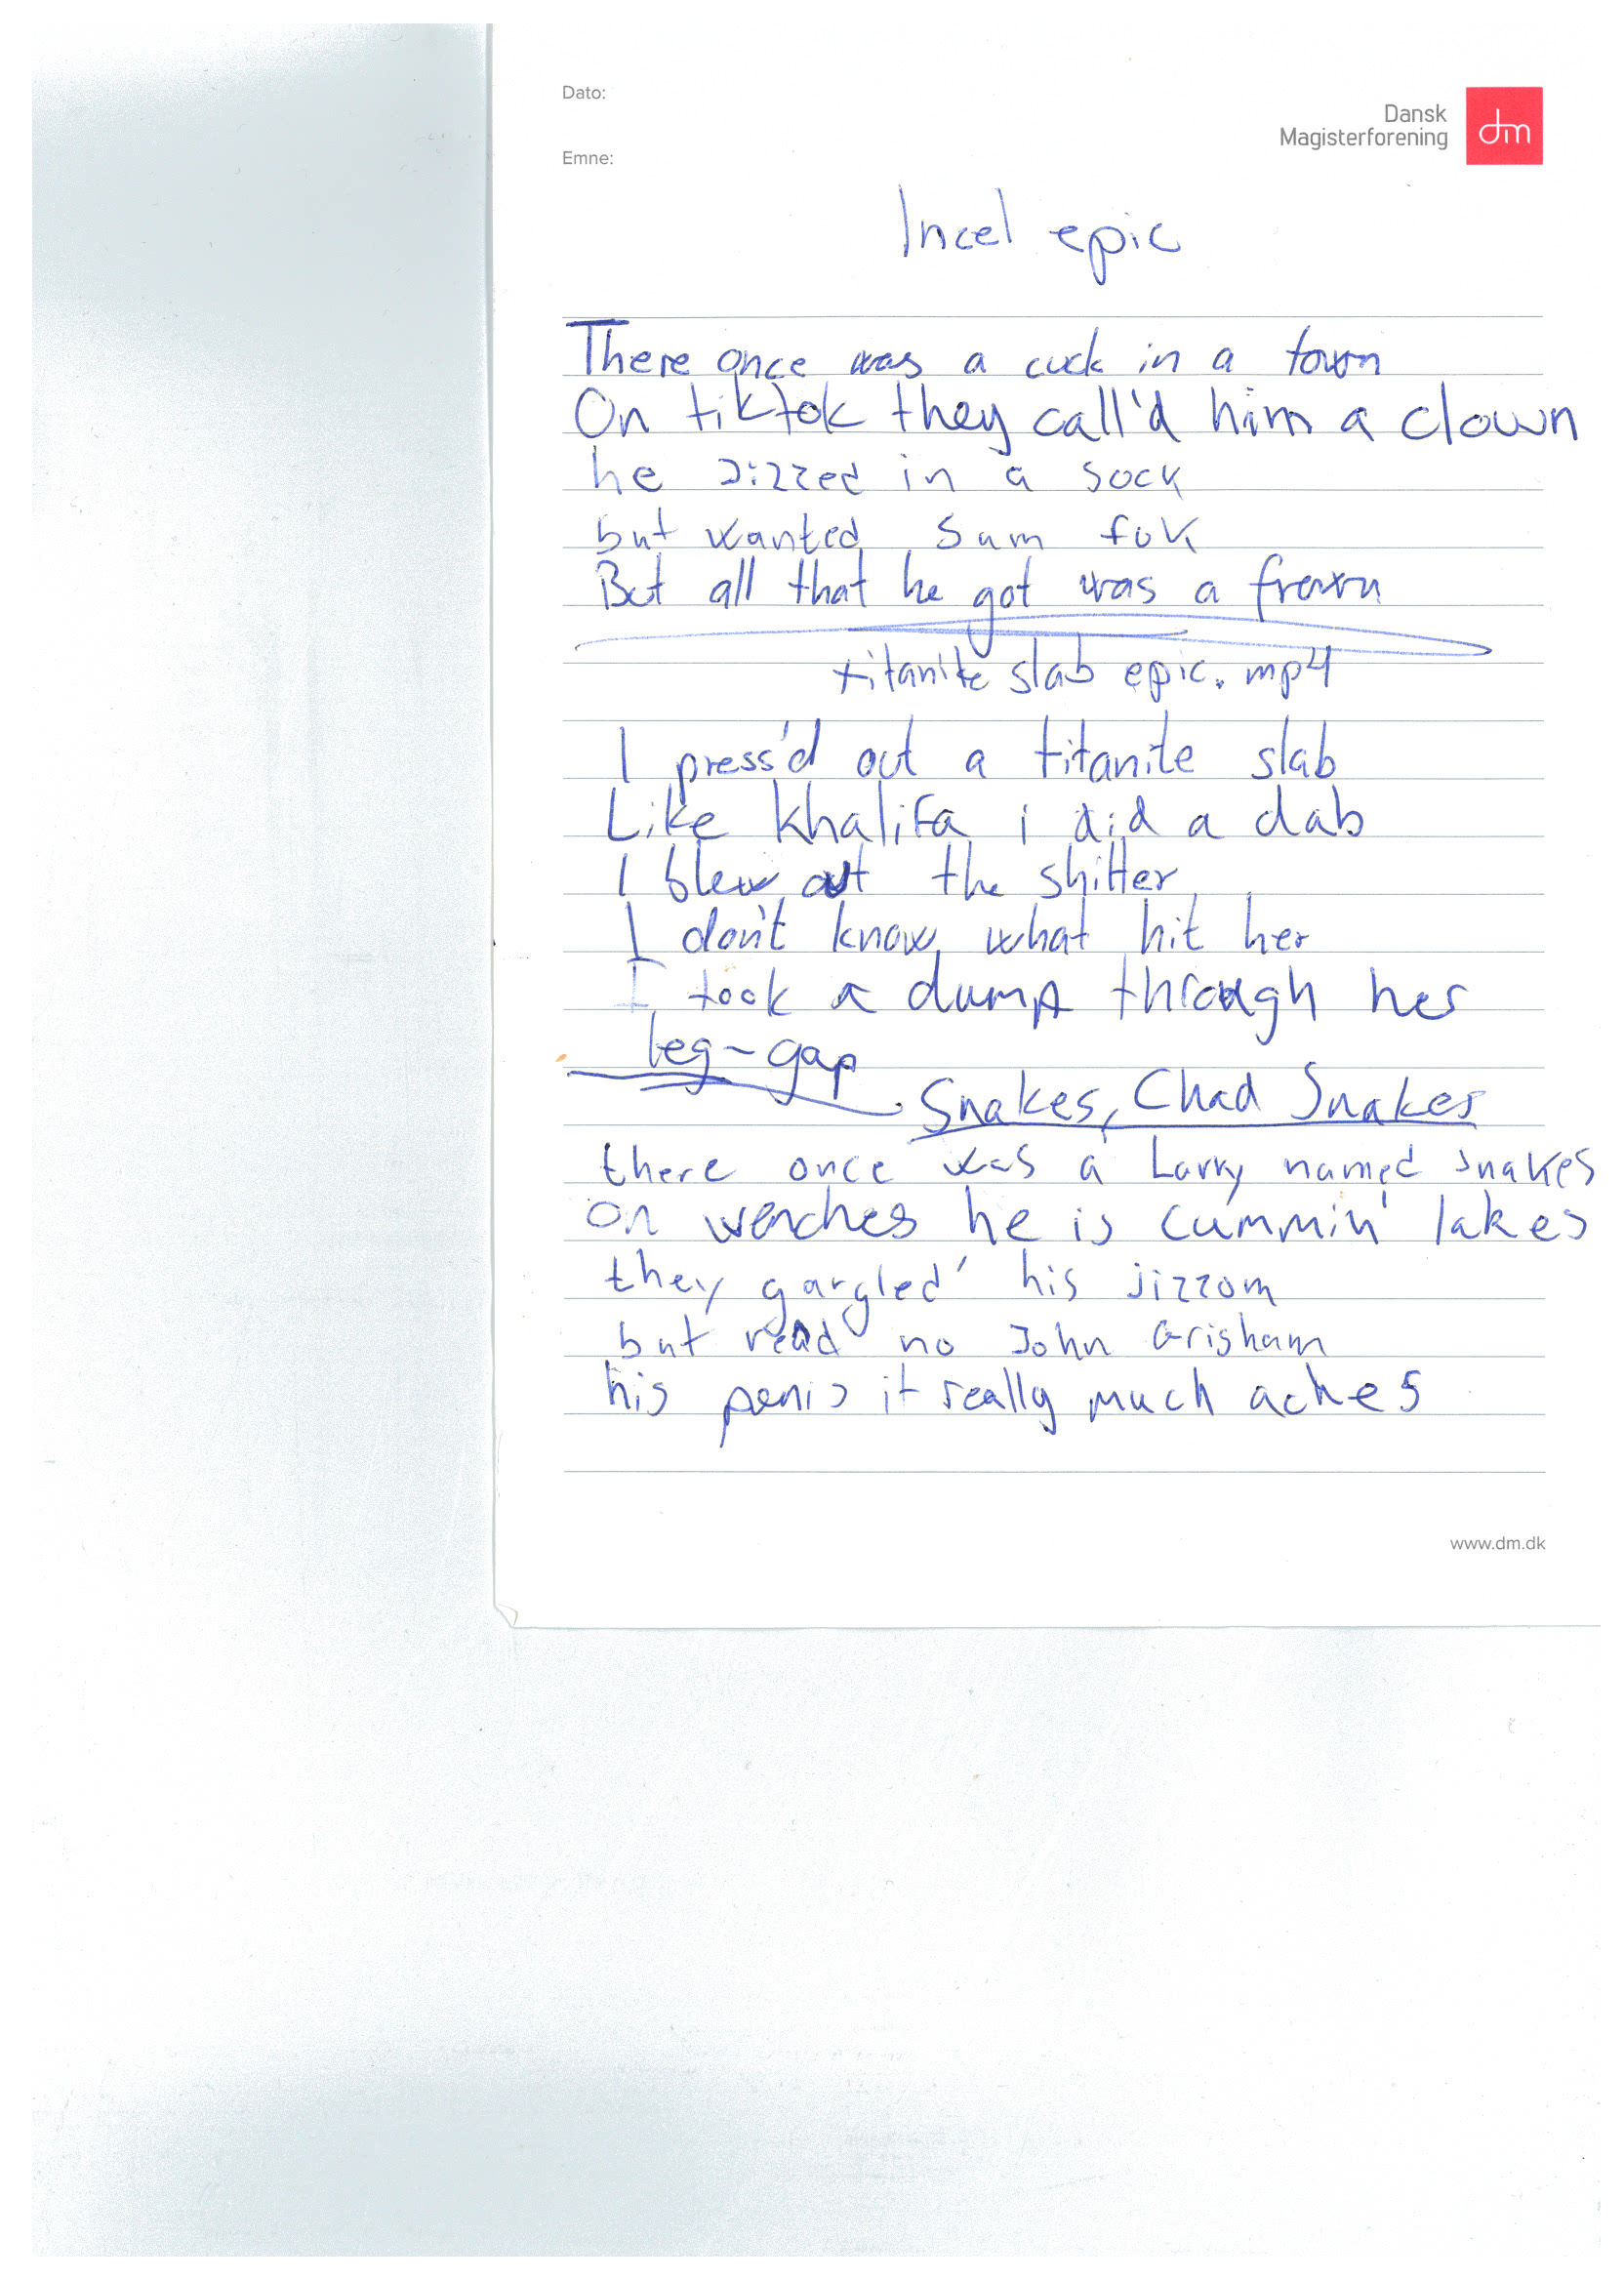 Dato:
Dansk
Magisterforening
dm
Emne:
Incel epic
There once was a cuck in a town
On tiktok they call'd him a clown
he Jizzed in a sock
but wanted sum fuk
But all that he got was a frown
titanite slab epic.mp4
I press'd out a titanite slab
Like Khalifa i did a dab
I blew out the shitter
I don't know what hit her
I took a dump through her
leg-gap
Snakes, Chad Snakes
there once was a Larry named snakes
on wenches he is cummin' lakes
they gargled' his jizzom
but read no John Grisham
his penis it really much aches
www.dm.dk